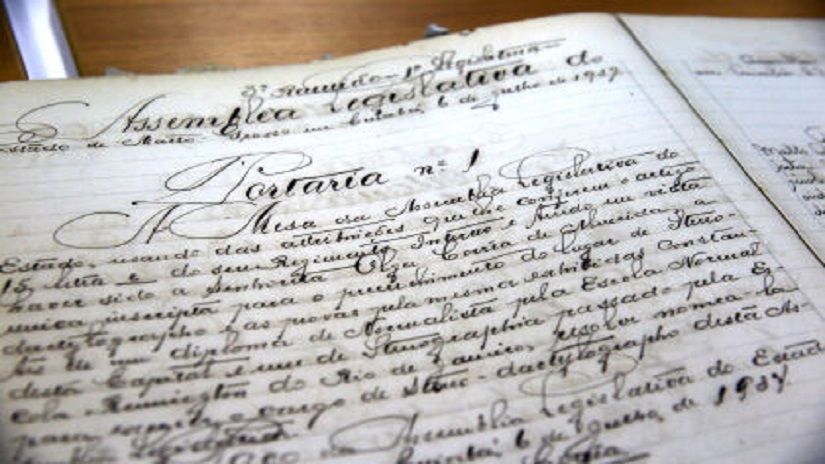 1ª Legislatura
Assembléa Legislativa do
Estado de Matto Grosso em Cuiabá, 6 de julho de 1937
Portaria nº 1
A Mesa da Assembléa Legislativa do
Estado, usando das attribuições que lhe confere o artigo
15 letra e do seu Regimento Interno e tendo em vista
haver sido a Senhorita Olga Corrêa de Almeida a
unica inscripta para o preenchimento do lugar de Steno-
dactylographo e as provas pela mesma exhibidas constan-
tes de um diploma de Normalista pela Escola Normal
desta Capital e um de Stenographia passado pela Es-
cola Remington do Rio de Janeiro, resolve nomea-la
para exercer o cargo de Steno-dactylographo desta As-
sembléa Legislativa.
da Assembléa Legislativa do Estado
Cuiabá, 6 de julho de 1937